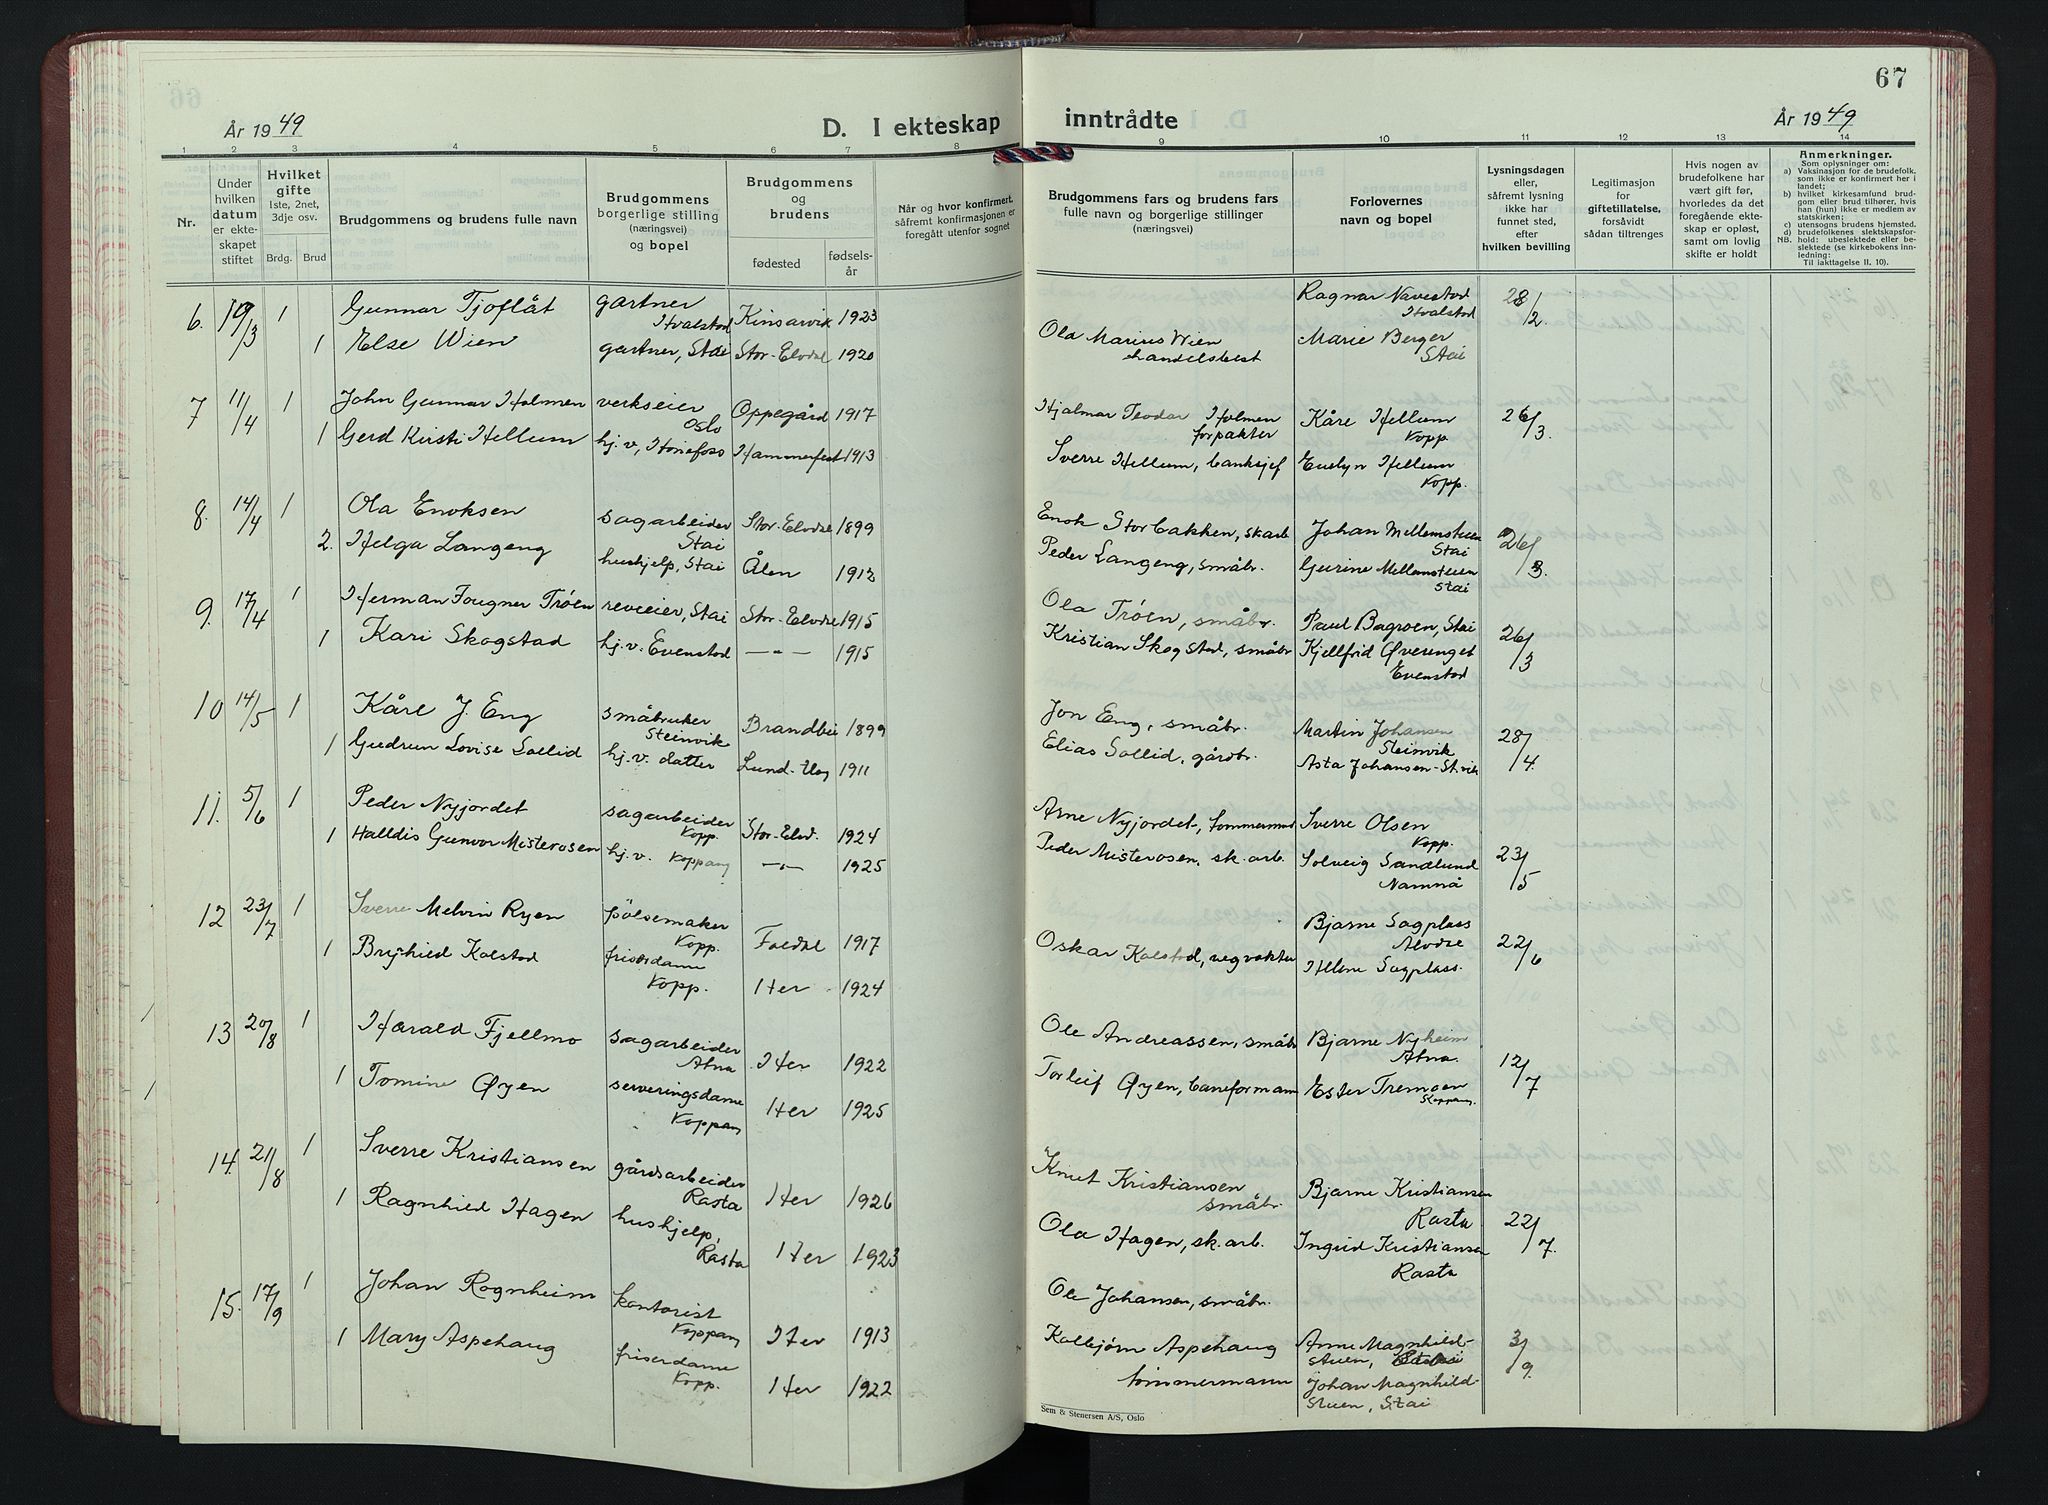 67
År 1949
D. I ekteskap
inntrådte
År 1949
1 2 3 4 5 6 7 8 9 10 11 12 13 14
Nr.
Under hvilken datum er ekteskapet stiftet
Hvilket gifte 1ste, 2net, 3dje osv.
Brdg. Brud
Brudgommens og brudens fulle navn
Brudgommens borgerlige stilling (næringsvei) og bopel
Brudgommens og brudens
fødested
fødselsår
Når og hvor konfirmert, såfremt konfirmasjonen er foregått utenfor sognet
Brudgommens fars og brudens fars fulle navn og borgerlige stillinger (næringsvei)
Forlovernes navn og bopel
Lysningsdagen eller, såfremt lysning ikke har funnet sted, efter hvilken bevilling
Legitimasjon for giftetillatelse, forsåvidt sådan tiltrenges
Hvis nogen av brudefolkene har vært gift før, hvorledes da det foregående ekteskap er opløst, samt om lovlig skifte er holdt
Anmerkninger.
Som oplysninger om:
a) Vaksinasjon for de brudefolk, som ikke er konfirmert her i landet;
b) hvilket kirkesamfund brudgom eller brud tilhører, hvis han (hun) ikke er medlem av statskirken;
c) utensogns brudens hjemsted.
d) brudefolkenes slektskapsforhold: ubeslektede eller beslektede (se kirkebokens innledning:
NB.
Til iakttagelse II. 10).
6. 19/3 1 Gunnar Tjoflåt gartner Hvalstad Kinsarvik 1923 Ragnar Navestad Hvalstad 28/2.
1 Else Wien gartner, Stai Stor-Elvdal 1920 Ola Marius Wien handelsbest Marie Berger Stai
7 11/4 1 John Gunnar Holmen verkseier Oslo Oppegård 1917 Hjalmar Teodor Holmen forpakter Kåre Hellum Kopp. 26/3.
1 Gerd Kirsti Hellum hj. v, Hønefoss Hammerfest 1913 Sverre Hellum, banksjef Evelyn Hellum Kopp.
8. 14/4 1 Ola Enoksen sagarbeider Stai Stor-Elvdal 1899 Enok Storbakken, skarb Johan Mellemstuen Stai 26/3.
2. Helga Langeng hushjelp, Stai Ålen 1912 Peder Langeng, småbr. Gurine Mellemstuen Stai
9. 17/4 1 Herman Fougner Trøen reveeier, Stai Stor-Elvdal 1915 Ola Trøen, småbr. Paul Bagroen, Stai 26/3
1 Kari Skogstad hj. v. Evenstad -"- 1915 Kristian Skogstad, småbr Kjellfrid Øverenget Evenstad
10 14/5 1 Kåre J. Eng småbruker Steinvik Brandbu 1899 Jon Eng, småbr. Martin Johansen Steinvik 28/4.
1 Gudrun Lovise Sollid hj. v. datter 1911 Elias Sollid, gårdbr. Asta Johansen-St.vik
11. 5/6 1 Peder Nyjordet sagarbeider Kopp. Stor-Elvd. 1924 Arne Nyjordet, tømmermand Sverre Olsen Kopp. 23/5
1 Halldis Gunvor Misterosen hj. v. Koppang -"- 1925 Peder Misterosen, sk. arb. Solveig Sandlund Namnå
12 23/7 1 Sverre Melvin Ryen pølsemaker Kopp. Foldal 1917 Bjarne Sagplass Alvdal 22/6
1 Brynhild Kolstad friserdame Kopp. Her 1924 Oskar Kolstad, vegvokter Helene Sagplass.
13 20/8 1 Harald Fjellmo sagarbeider Atna Her 1922 Ole Andreassen, småbr Bjarne Nyheim Atna. 12/7
1 Tomine Øyen serveringsdame Koppang Her 1925 Torleif Øyen, baneformann Ester Tremoen Koppang
14. 21/8 1 Sverre Kristiansen gårdsarbeider Rasta Her 1926 Knut Kristiansen småbr. Bjarne Kristiansen Rasta 22/7.
1 Ragnhild Hagen hushjelp, Rasta Her 1923 Ola Hagen, sk. arb. Ingrid Kristiansen Rasta
15. 17/9 1 Johan Rognheim kontorist Koppang Her 1913 Ole Johansen, småbr.
1 Mary Aspehaug friserdame Kopp. Her 1922 Kolbjørn Aspehaug tømmermann Anne Magnhildstuen, 3/9.
Johan Magnhildstuen, Stai
Sem & Stenersen A/S, Oslo